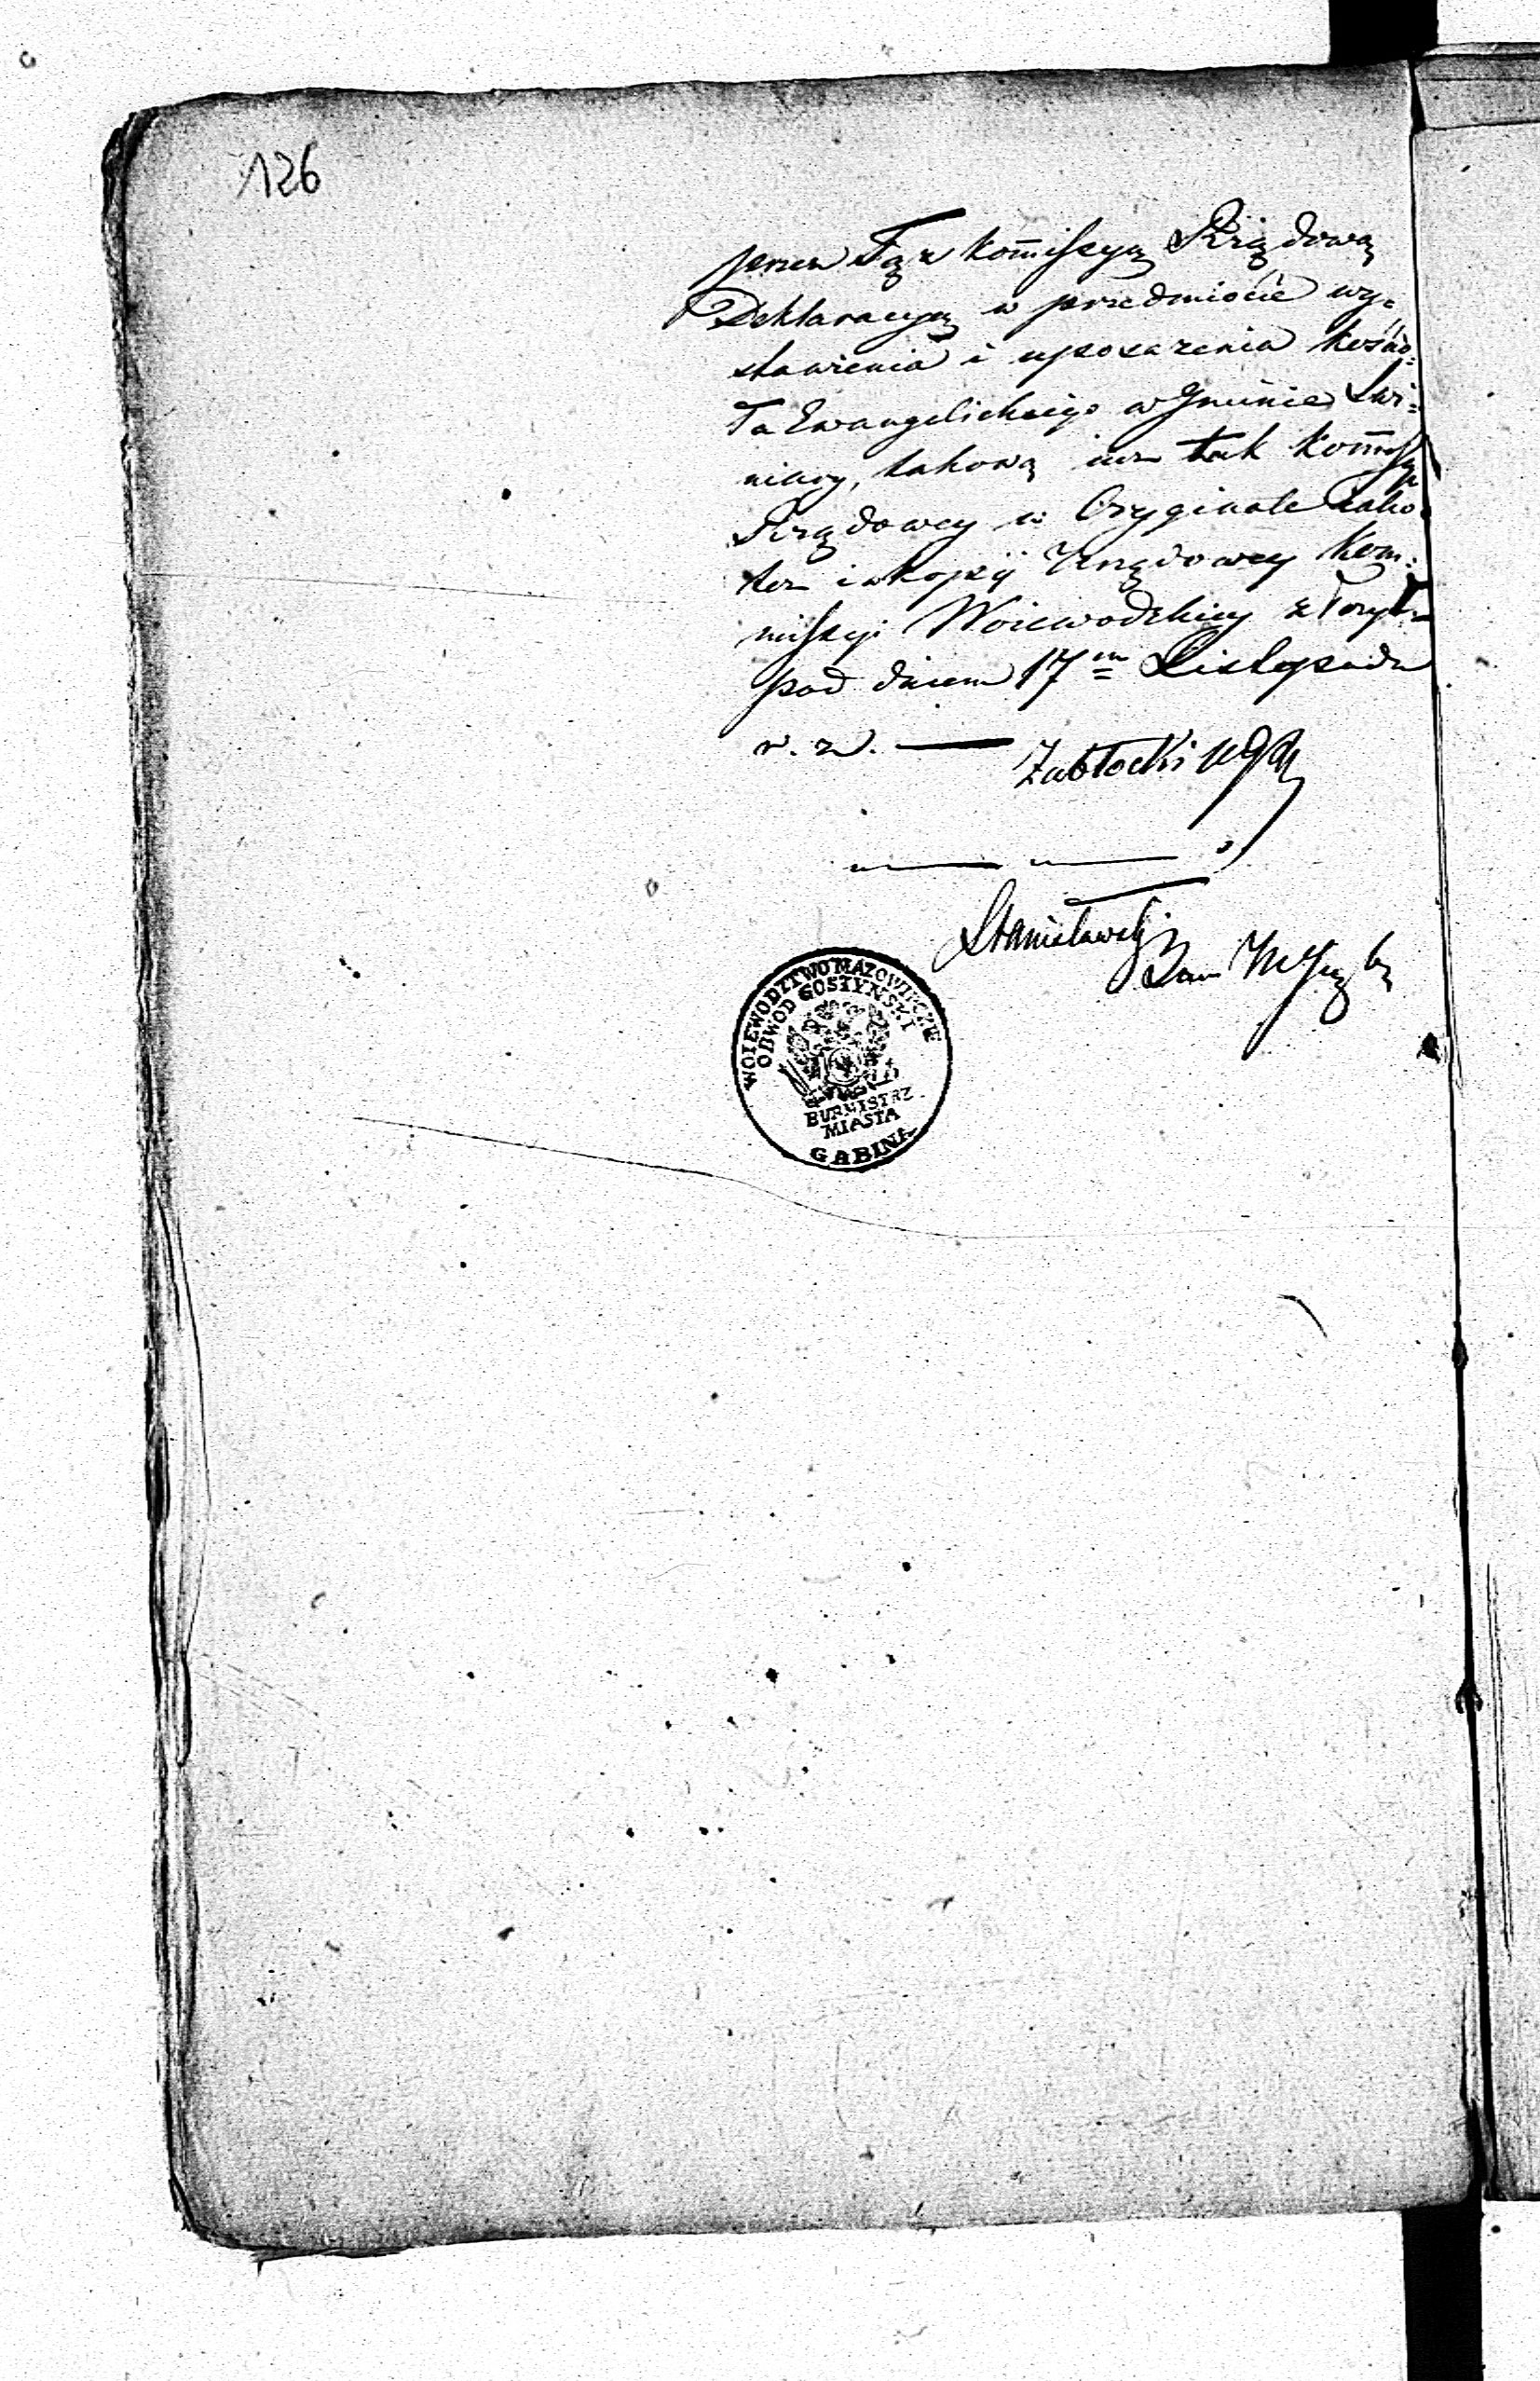 126
przez Tąż Kommissyą Rządową
Deklaracyą w przedmiocie wy=
stawienia i uposarzenia kościo=
ła Ewangelickiego w Gminie Świ=
niary, takową iuz tak Kommissyi
Rządowey w Oryginale iako
tez i w kopyi Urzędowey Kom=
missyi Woiewodzkiey złozył
pod dniem 17m Listopada
r. z.
Zabłocki
Stanisławski
WOIEWODZTWO MAZOWIECKIE
OBWOD GOSTYNSKI
BURMISTRZ
MIASTA
GABINA